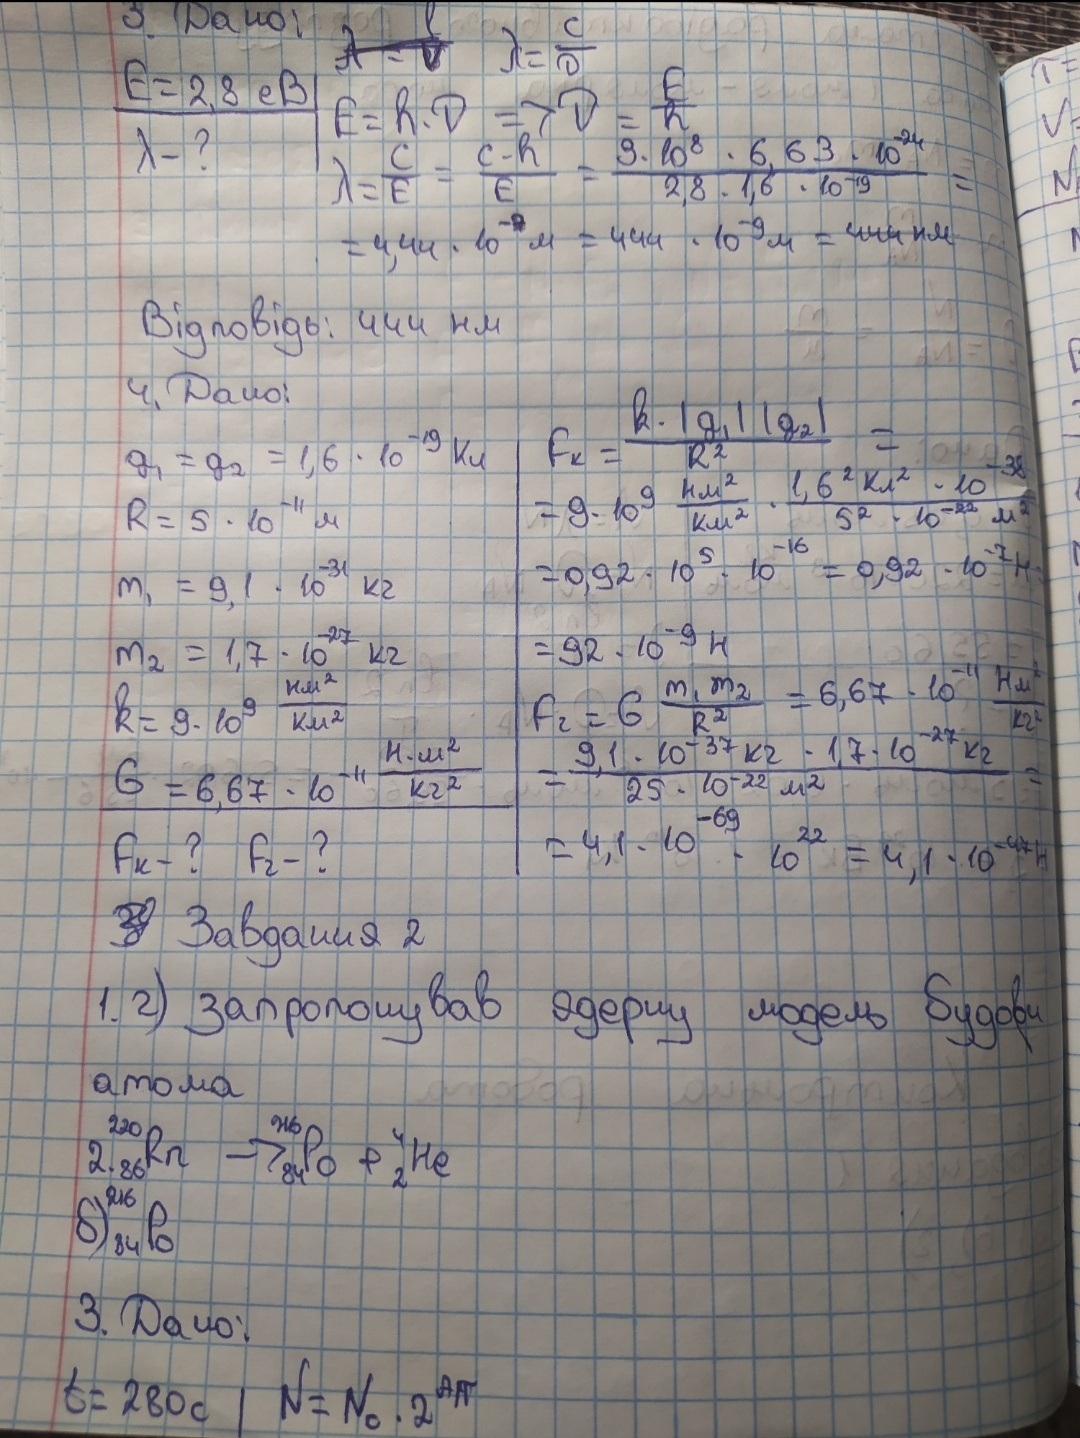 3. Дано:
λ = c/ν
E = 2,8 еВ
E = h · ν => ν = E/h
λ - ?
λ = c/E = c·h/E = 9·10⁸ · 6,63 · 10⁻²⁴ / 2,8 · 1,6 · 10⁻¹⁹ =
= 4,44 · 10⁻⁷ м = 444 · 10⁻⁹ м = 444 нм
Відповідь: 444 нм
4. Дано:
q₁ = q₂ = 1,6 · 10⁻¹⁹ Кл
R = 5 · 10⁻¹¹ м
m₁ = 9,1 · 10⁻³¹ кг
m₂ = 1,7 · 10⁻²⁷ кг
k = 9 · 10⁹ Нм²/Км²
G = 6,67 · 10⁻¹¹ Н·м²/кг²
Fк - ? Fг - ?
Fк = k · |q₁| |q₂| / R² =
= 9 · 10⁹ Нм²/Км² · 1,6² Кл² · 10⁻³⁸ / 5² · 10⁻²² м²
= 0,92 · 10⁵ · 10⁻¹⁶ = 0,92 · 10⁻⁷ Н =
= 92 · 10⁻⁹ Н
Fг = G m₁ m₂ / R² = 6,67 · 10⁻¹¹ Нм²/кг²
= 9,1 · 10⁻³⁷ кг · 1,7 · 10⁻²⁷ кг / 25 · 10⁻²² м² =
= 4,1 · 10⁻⁶⁹ · 10²² = 4,1 · 10⁻⁴⁷ Н
Завдання 2
1. г) запропонував ядерну модель будови
атома
2. ²²⁰₈₆Rn → ²¹⁶₈₄Po + ⁴₂He
б) ²¹⁶₈₄Po
3. Дано:
t = 280 с | N = N₀ · 2